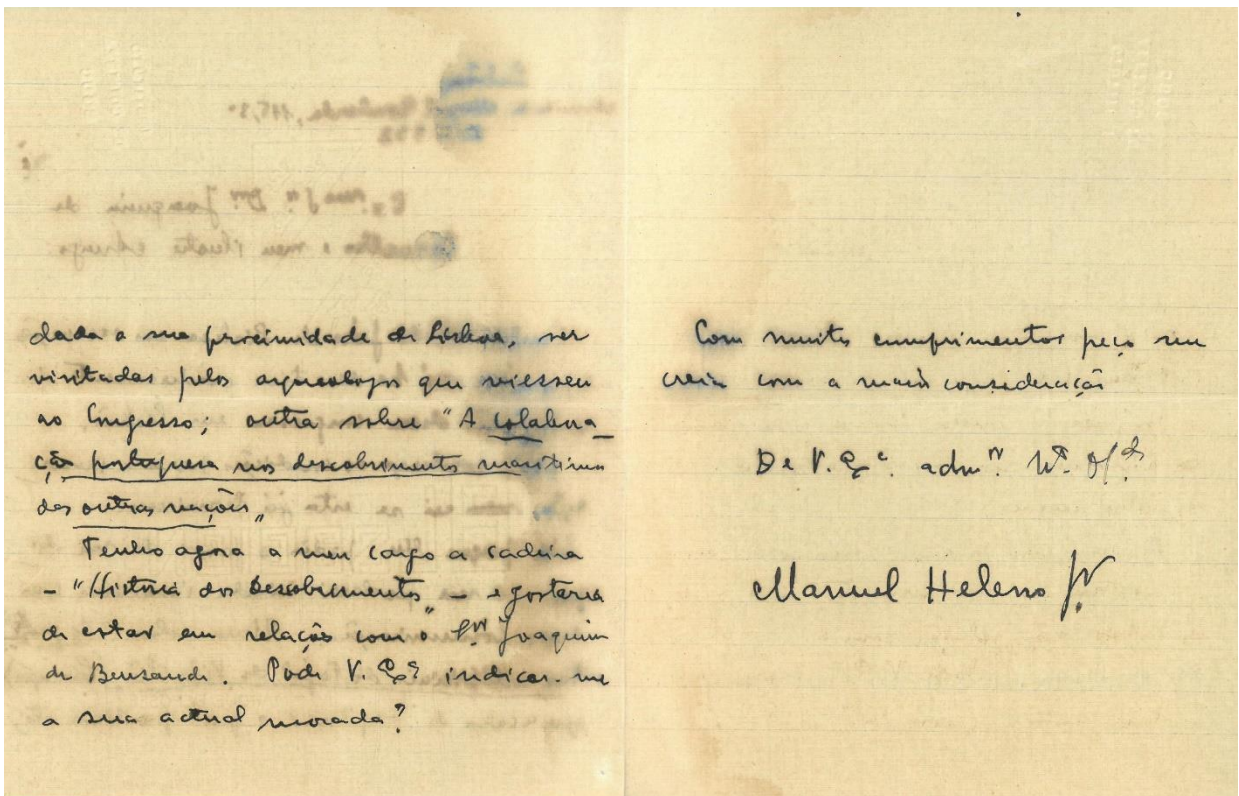 dada a sua proximidade de Lisboa, ser
visitadas pelos arqueologos que viessem
ao Congresso; outra sobre "A colabora_
ção portuguesa nos descobrimentos maritimos
das outras nações"
Tenho agora a meu cargo a cadeira
- "Historia dos Descobrimentos" - e gostaria
de estar em relação com o Sr. Joaquim
de Bensaude. Pode V. Exª indicar-me
a sua actual morada?
Com muitos cumprimentos peço me
creia com a maior consideração
De V. Exª. admr.
Manuel Heleno Jr.